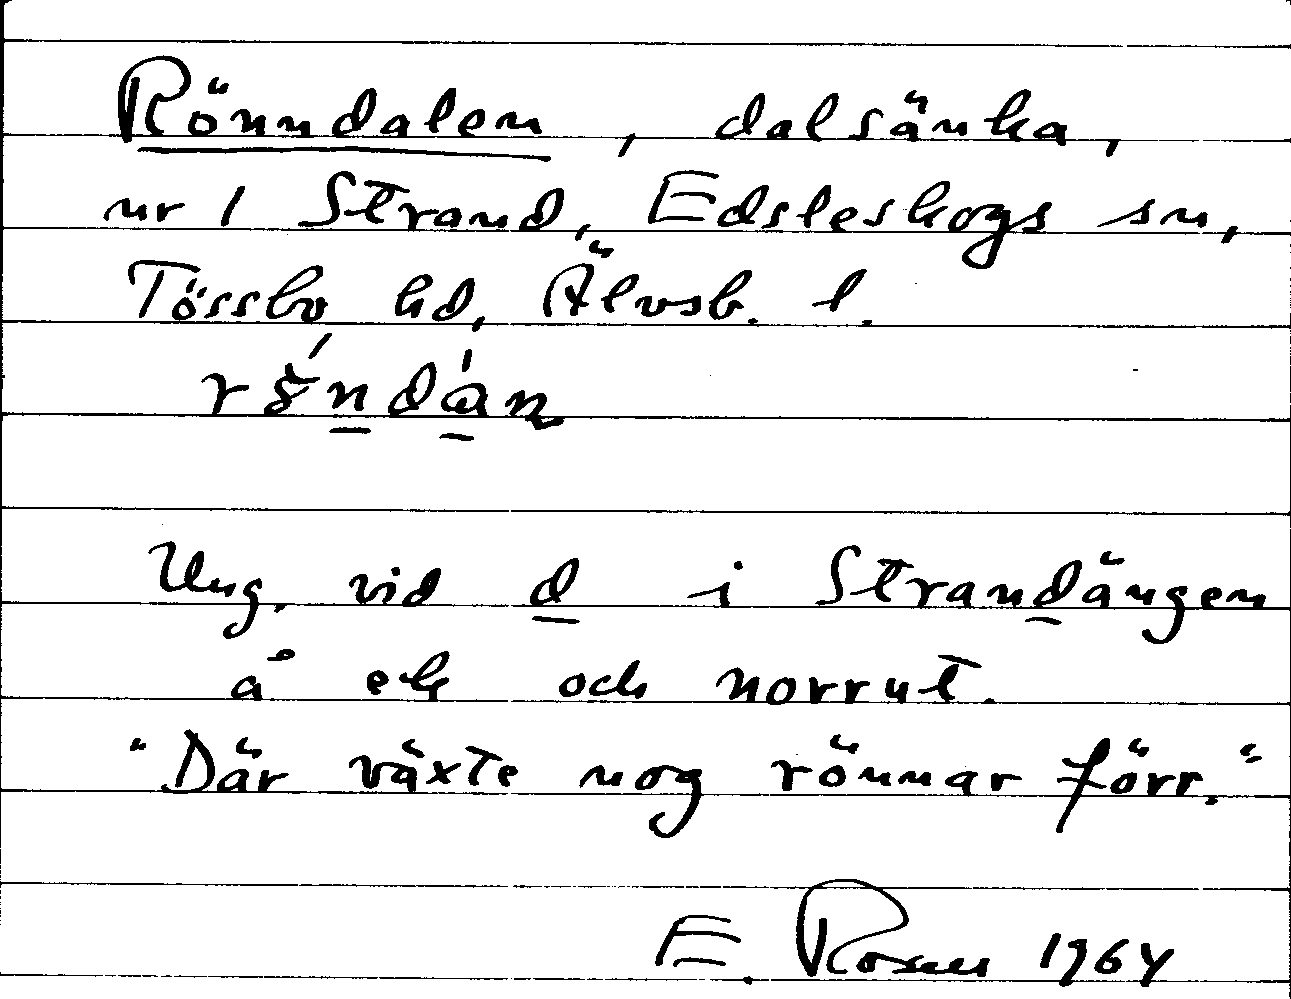 Rönndalen, dalsänka,
nr 1 Strand, Edsleskogs sn,
Tössbo hd, Älvsb. l.
Ung. vid d i Strandängen
å ek och norrut.
"Där växte nog rönnar förr."
E. Rosell 1964